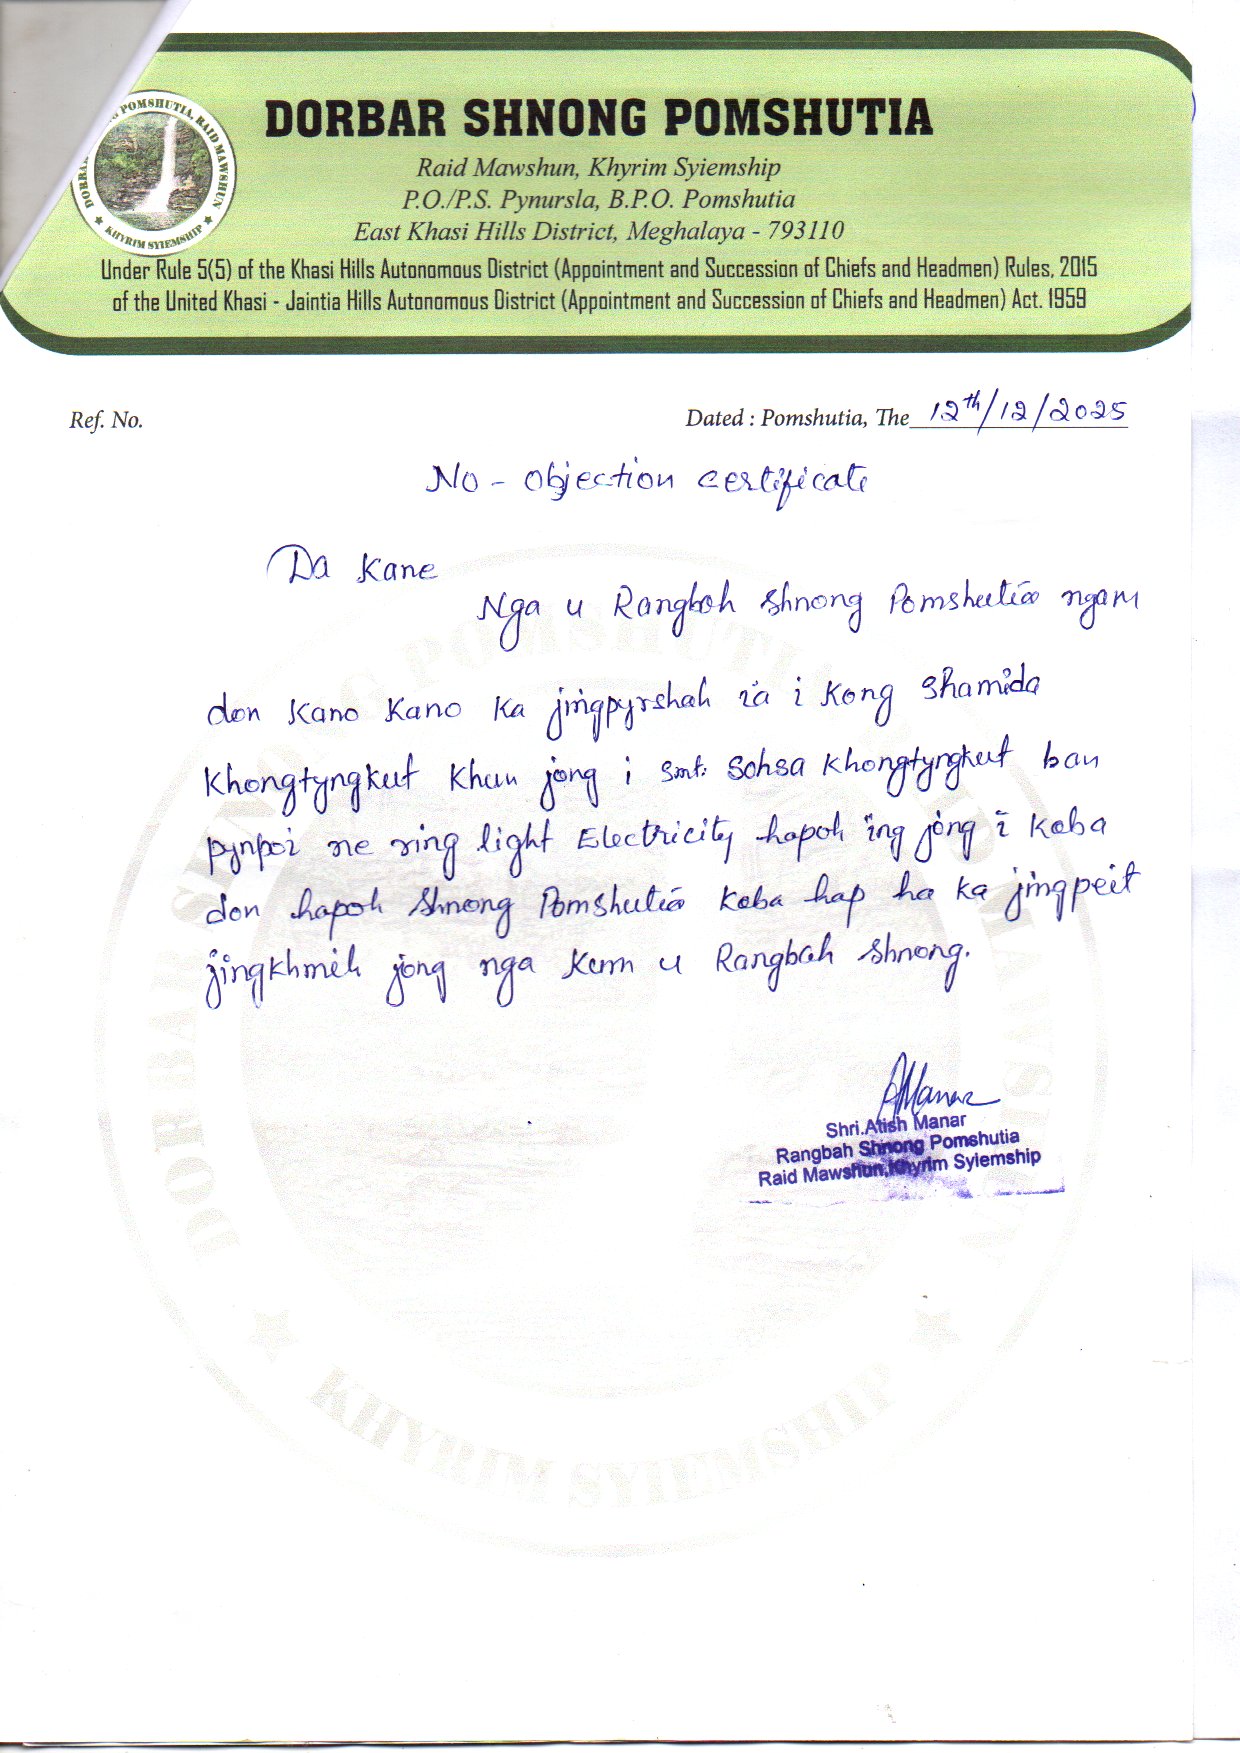 DORBAR SHNONG POMSHUTIA
Raid Mawshun, Khyrim Syiemship
P.O./P.S. Pynursla, B.P.O. Pomshutia
East Khasi Hills District, Meghalaya - 793110
Under Rule 5(5) of the Khasi Hills Autonomous District (Appointment and Succession of Chiefs and Headmen) Rules, 2015
of the United Khasi - Jaintia Hills Autonomous District (Appointment and Succession of Chiefs and Headmen) Act. 1959
POMSHUTIA, RAID MAWSHUN
KHYRIM SYIEMSHIP
Ref. No.
Dated : Pomshutia, The 12th/12/2025
No - objection certificate
Da Kane
Nga u Rangbah Shnong Pomshutia ngam
don Kano Kano Ka jingpyrshah ia i Kong Shamida
Khongtyngkut Khun jong i Smt. Sohsa Khongtyngkut ban
pynpoi ne ring light Electricity hapoh ïng jong i Kaba
don hapoh Shnong Pomshutia Kaba hap ha ka jingpeit
jingkhmih jong nga Kum u Rangbah Shnong.
AManar
Shri.Atish Manar
Rangbah Shnong Pomshutia
Raid Mawshun,Khyrim Syiemship